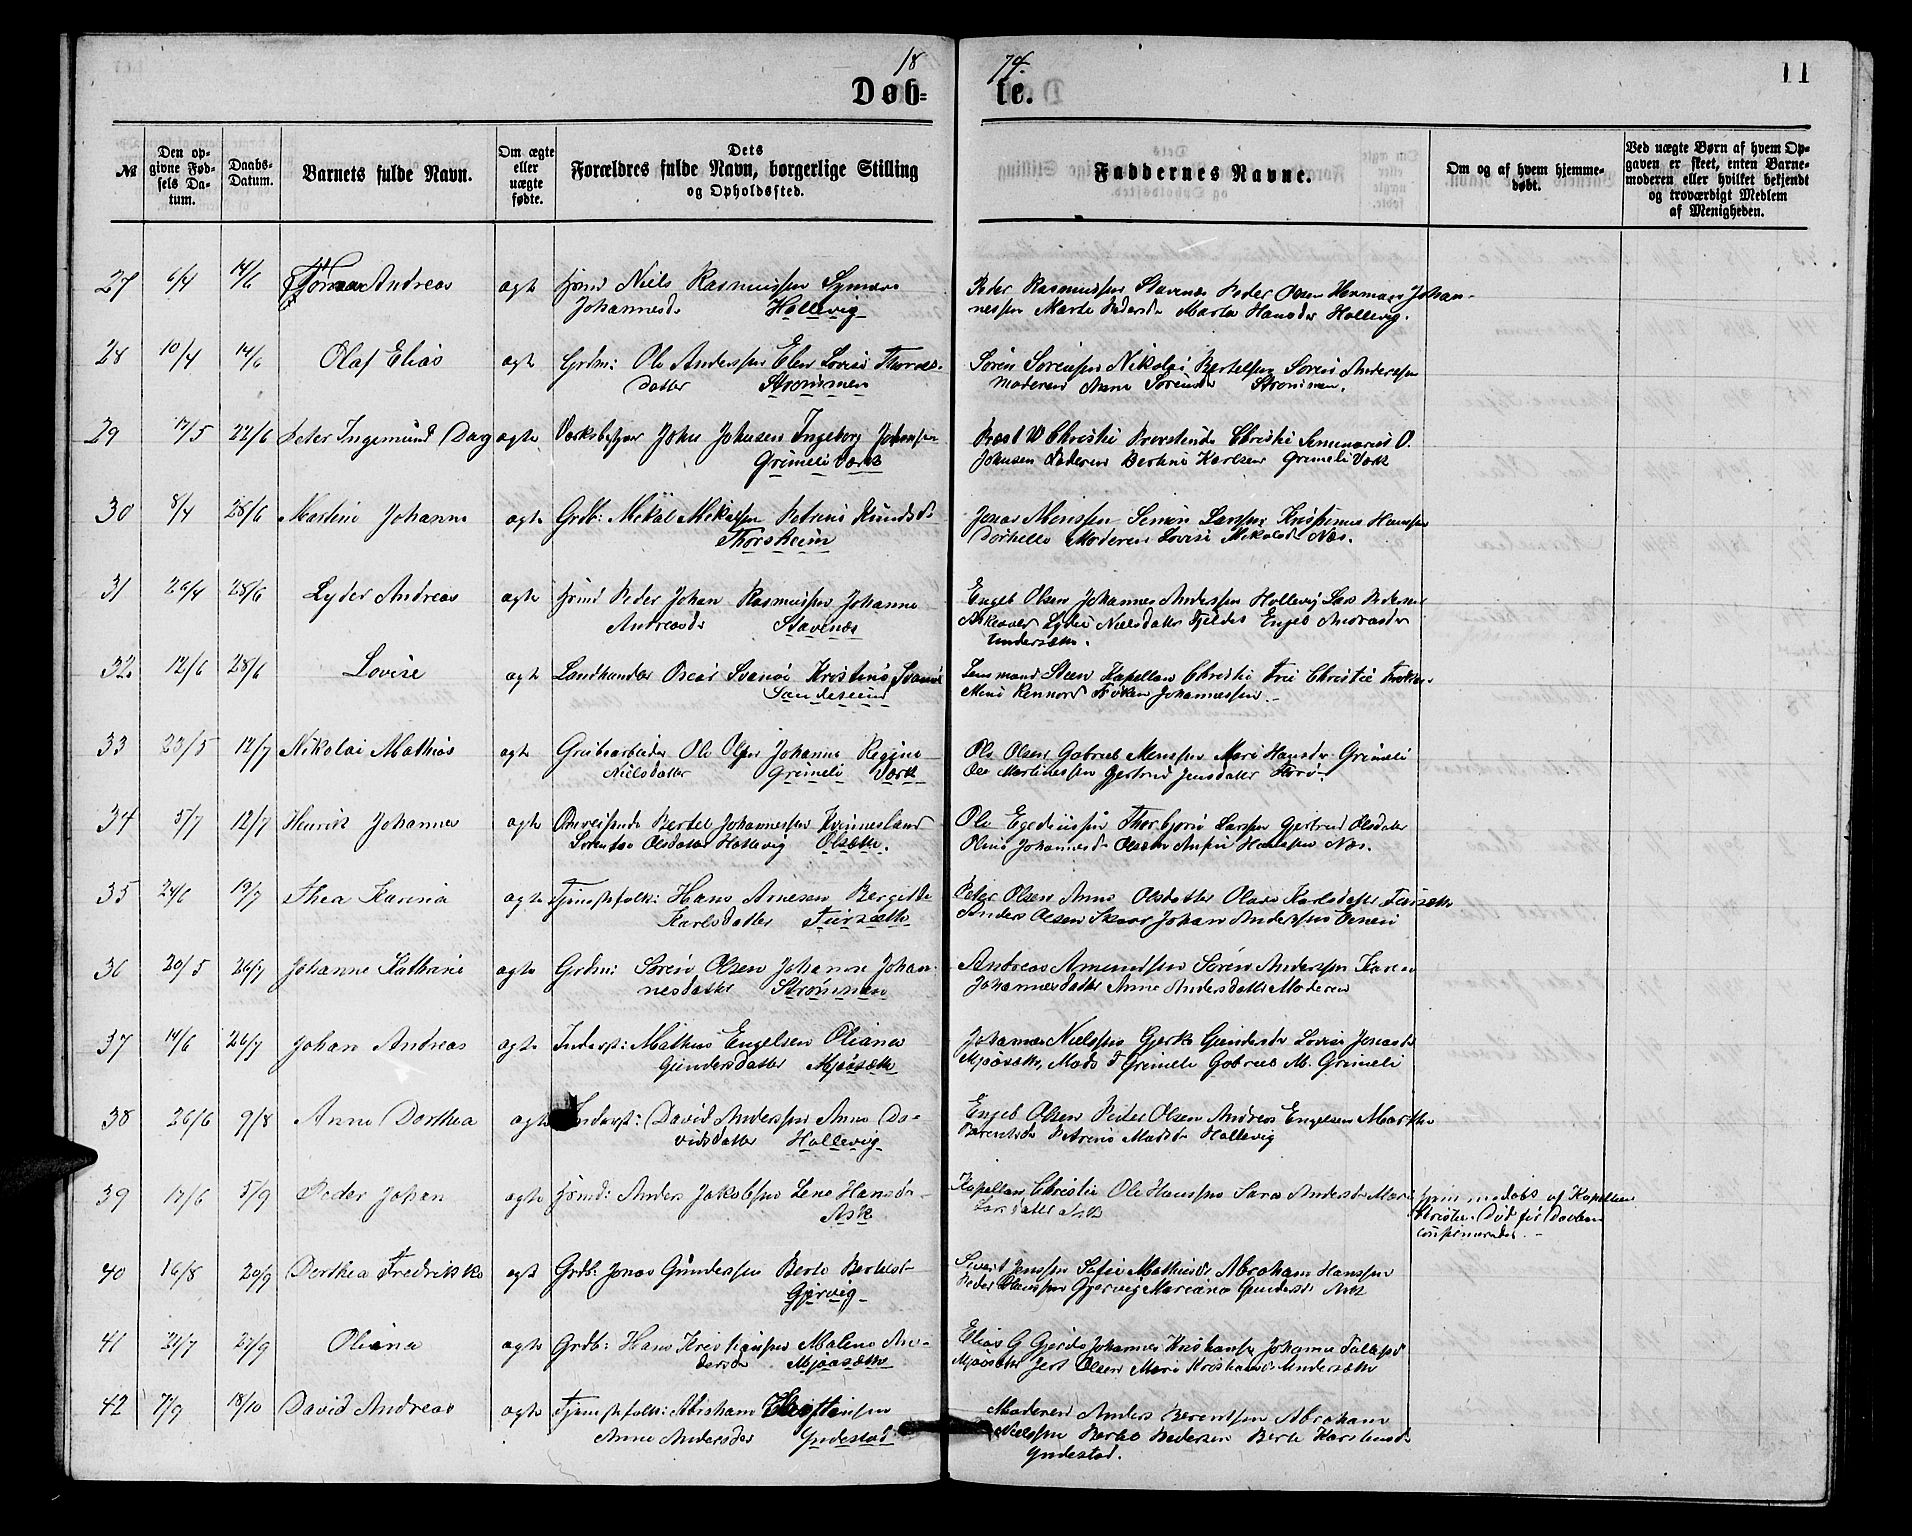 18 74.
11
Døb= te.
№
Den op-
givne Fød-
sels Da-
tum.
Daabs-
Datum.
Barnets fulde Navn.
Om ægte
eller
uægte
fødte.
Dets
Forældres fulde Navn, borgerlige Stilling
og Opholdssted.
Faddernes Navne.
Om og af hvem hjemme-
døbt.
Ved uægte Børn af hvem Op-
gaven er skeet, enten Barne-
moderen eller hvilket bekjendt
og troværdigt Medlem
af Menigheden.
27 6/4 14/6 Andreas ægte Niels Rasmussen
Johannesd. Hellevig
Peder Rasmussen Stavenæs Peder Olsen Herman Johan-
nessen Marte Pedersd. Marta Hansdr Hellevig.
28 10/4 14/6 Olaf Elias ægte Grdm: Ole Anderssen Elen Lovise Thomas-
datter Strømmen
Søren Sørensen Nikolai Bertelsen Søren Anderssen
Moderen Anne Sørensdr Strømmen.
29 17/5 22/6 Peter Ingemund Dag ægte Værksbestyrer John Johnsen Ingeborg Johnsen
Grimeli Værk
Præst W Christie Provstinde Christie Seminarist O.
Johnsen Faderen Bertine Karlsen Grimeli Værk
30 8/4 28/6 Martine Johanne ægte Grdb: Mikal Mikalsen Petrine Knudsd.
Thorsheim
Jonas Monssen Simon Larssen Kristense Hanssen
Dorthe Moderen Lovise Mikalsd. Næs.
31 26/4 28/6 Lyder Andreas ægte Peder Johan Rasmussen Johanne
Andreasd. Stavenæs
Engeb Olsen Johannes Anderssen Hellevig Lars Pedersen
Lydia Nielsdatter Fjeldes Engeb Andreasdr
Undersæth.
32. 12/6 28/6 Lovise ægte Landhandler Oscar Svanøe Kristine Svanøe
Sandesund
Lensmand Steen Kapellan Christie Frue Christie Frøken
Mine Rennord Frøken Johannessen
33 23/5 12/7 Nikolai Mathias ægte Grubearbeider Ole Olsen Johanne Regine
Nielsdatter Grimeli Værk
Ole Olsen Gabriel Monssen Mari Hansdr Grimeli
Ole Martinussen Gjertrud Jensdatter
34 5/7 12/7 Henrik Johannes ægte Omreisende Bertel Johannessen Kvinnesland
Olsdatter Hellevig Olsæth.
Ole Egediussen Thorbjørn Larssen Gjertrud Olsdatter
Oline Johannesd. Hanssen Næs.
35 24/6 19/7 Thea Hanna ægte Tjenestefolk: Hans Arnesen Bergitte
Karlsdatter Fursæth
Peter Olsen Anne Olsdatter Olava Karlsdatter Fursæth
Anders Olsen Skaar Johan Anderssen
36 20/5 26/7 Johanne Kathrine ægte Grdm: Søren Olsen Johanne Johan-
nesdatter Strømmen
Andreas Amundsen Søren Anderssen Karen
Johannesdatter Anne Andersdatter Moderen
37 14/6 26/7 Johan Andreas ægte Inderst: Mathias Engelsen Oliana
Gundersdatter Mjøøsæth
Johannes Nielssen Gjerte Gundersdr Lovise Jonasdr
Mjøøsæth, Mads J Grimeli Gabriel M. Grimeli
38 26/6 9/8 Anne Dorthea ægte Inderst: David Anderssen Anne Da-
vidsdatter Hellevig
Engeb Olsen Peder Olsen Andreas Engelsen Marthe
Berentsdr Petrine Madsdr Hellevig
39 17/6 5/9 Peder Johan ægte Anders Jakobsen Lene Hansdr
Ask
Kapellan Christie Ole Hanssen Sara Andersdr Mari
Larsdatter Ask
hjemmedøbt af Kapellan
Christie. Død før Daaben
confirmeredes.
40 16/8 20/9 Dorthea Fredrikke ægte Grdb: Jonas Gunderssen Berte Bertelsd
Gjervig
Sivert Jenssen Sofie Mathiasdr Abraham Hanssen
Peder Hanssen Gjervig Mariane Gundersdr Ask
41 21/7 27/9 Oliana ægte Grdb: Hans Kristiansen Malene An-
dersdr Mjøøsæth
Elias G Gjerde Johannes Kristiansen Johanne
Mjøøsæth Jens Olsen Mari Kristiansdr Undersæth
42 7/9 18/10 David Andreas ægte Tjenestefolk: Abraham
Anne Andersdr Yndestad
Moderen Anders Berentsen Abraham
Nielssen Berte Pedersen Berte Karstensdr
Yndestad.